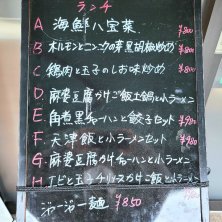 ランチ
A 海鮮八宝菜 ¥800
B ホルモンとニンニクの芽黒胡椒炒め ¥800
C 鶏肉と玉子のしお味炒め ¥800
D 麻婆豆腐かけご飯土鍋と小ラーメン
E 角煮黒チャーハンと餃子セット ¥980
F 天津飯と小ラーメンセット ¥980
G 麻婆豆腐かけチャーハンと小ラーメン
H エビと玉子チリソースかけご飯と小ラーメン
ジャージャー麺 ¥850